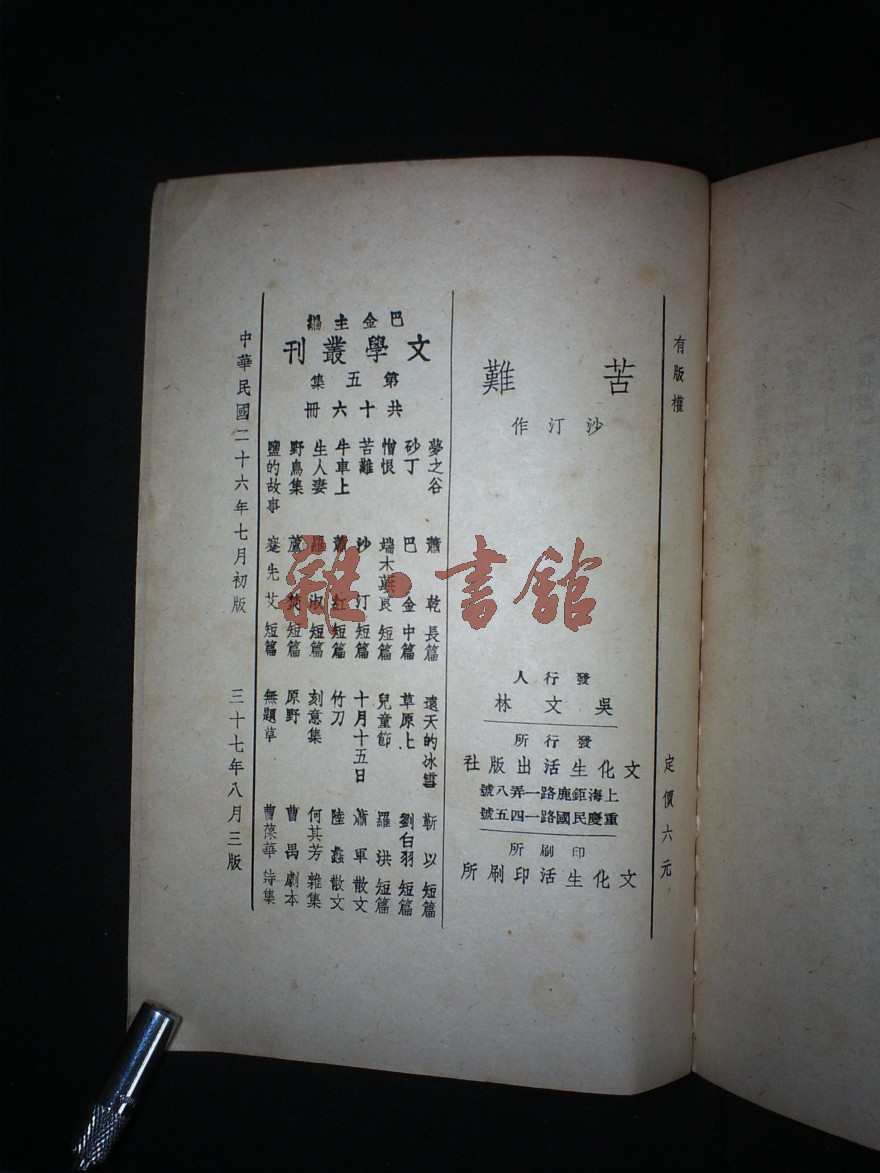 有版權
定價六元
苦難
沙汀作
發行人
吳文林
發行所
文化生活出版社
上海鉅鹿路一弄八號
重慶民國路一四五號
印刷所
文化生活印刷所
巴金主編
文學叢刊
第五集
共十六冊
夢之谷 蕭乾 長篇
砂丁 巴金 中篇
憎恨 端木蕻良 短篇
苦難 沙汀 短篇
牛車上 蕭紅 短篇
生人妻 羅淑 短篇
野鳥集 蘆焚 短篇
鹽的故事 蹇先艾 短篇
遠天的冰雪 靳以 短篇
草原上 劉白羽 短篇
兒童節 羅洪 短篇
十月十五日 蕭軍 散文
竹刀 陸蠡 散文
刻意集 何其芳 雜集
原野 曹禺 劇本
無題草 曹葆華 詩集
中華民國二十六年七月初版
三十七年八月三版
雜·書館